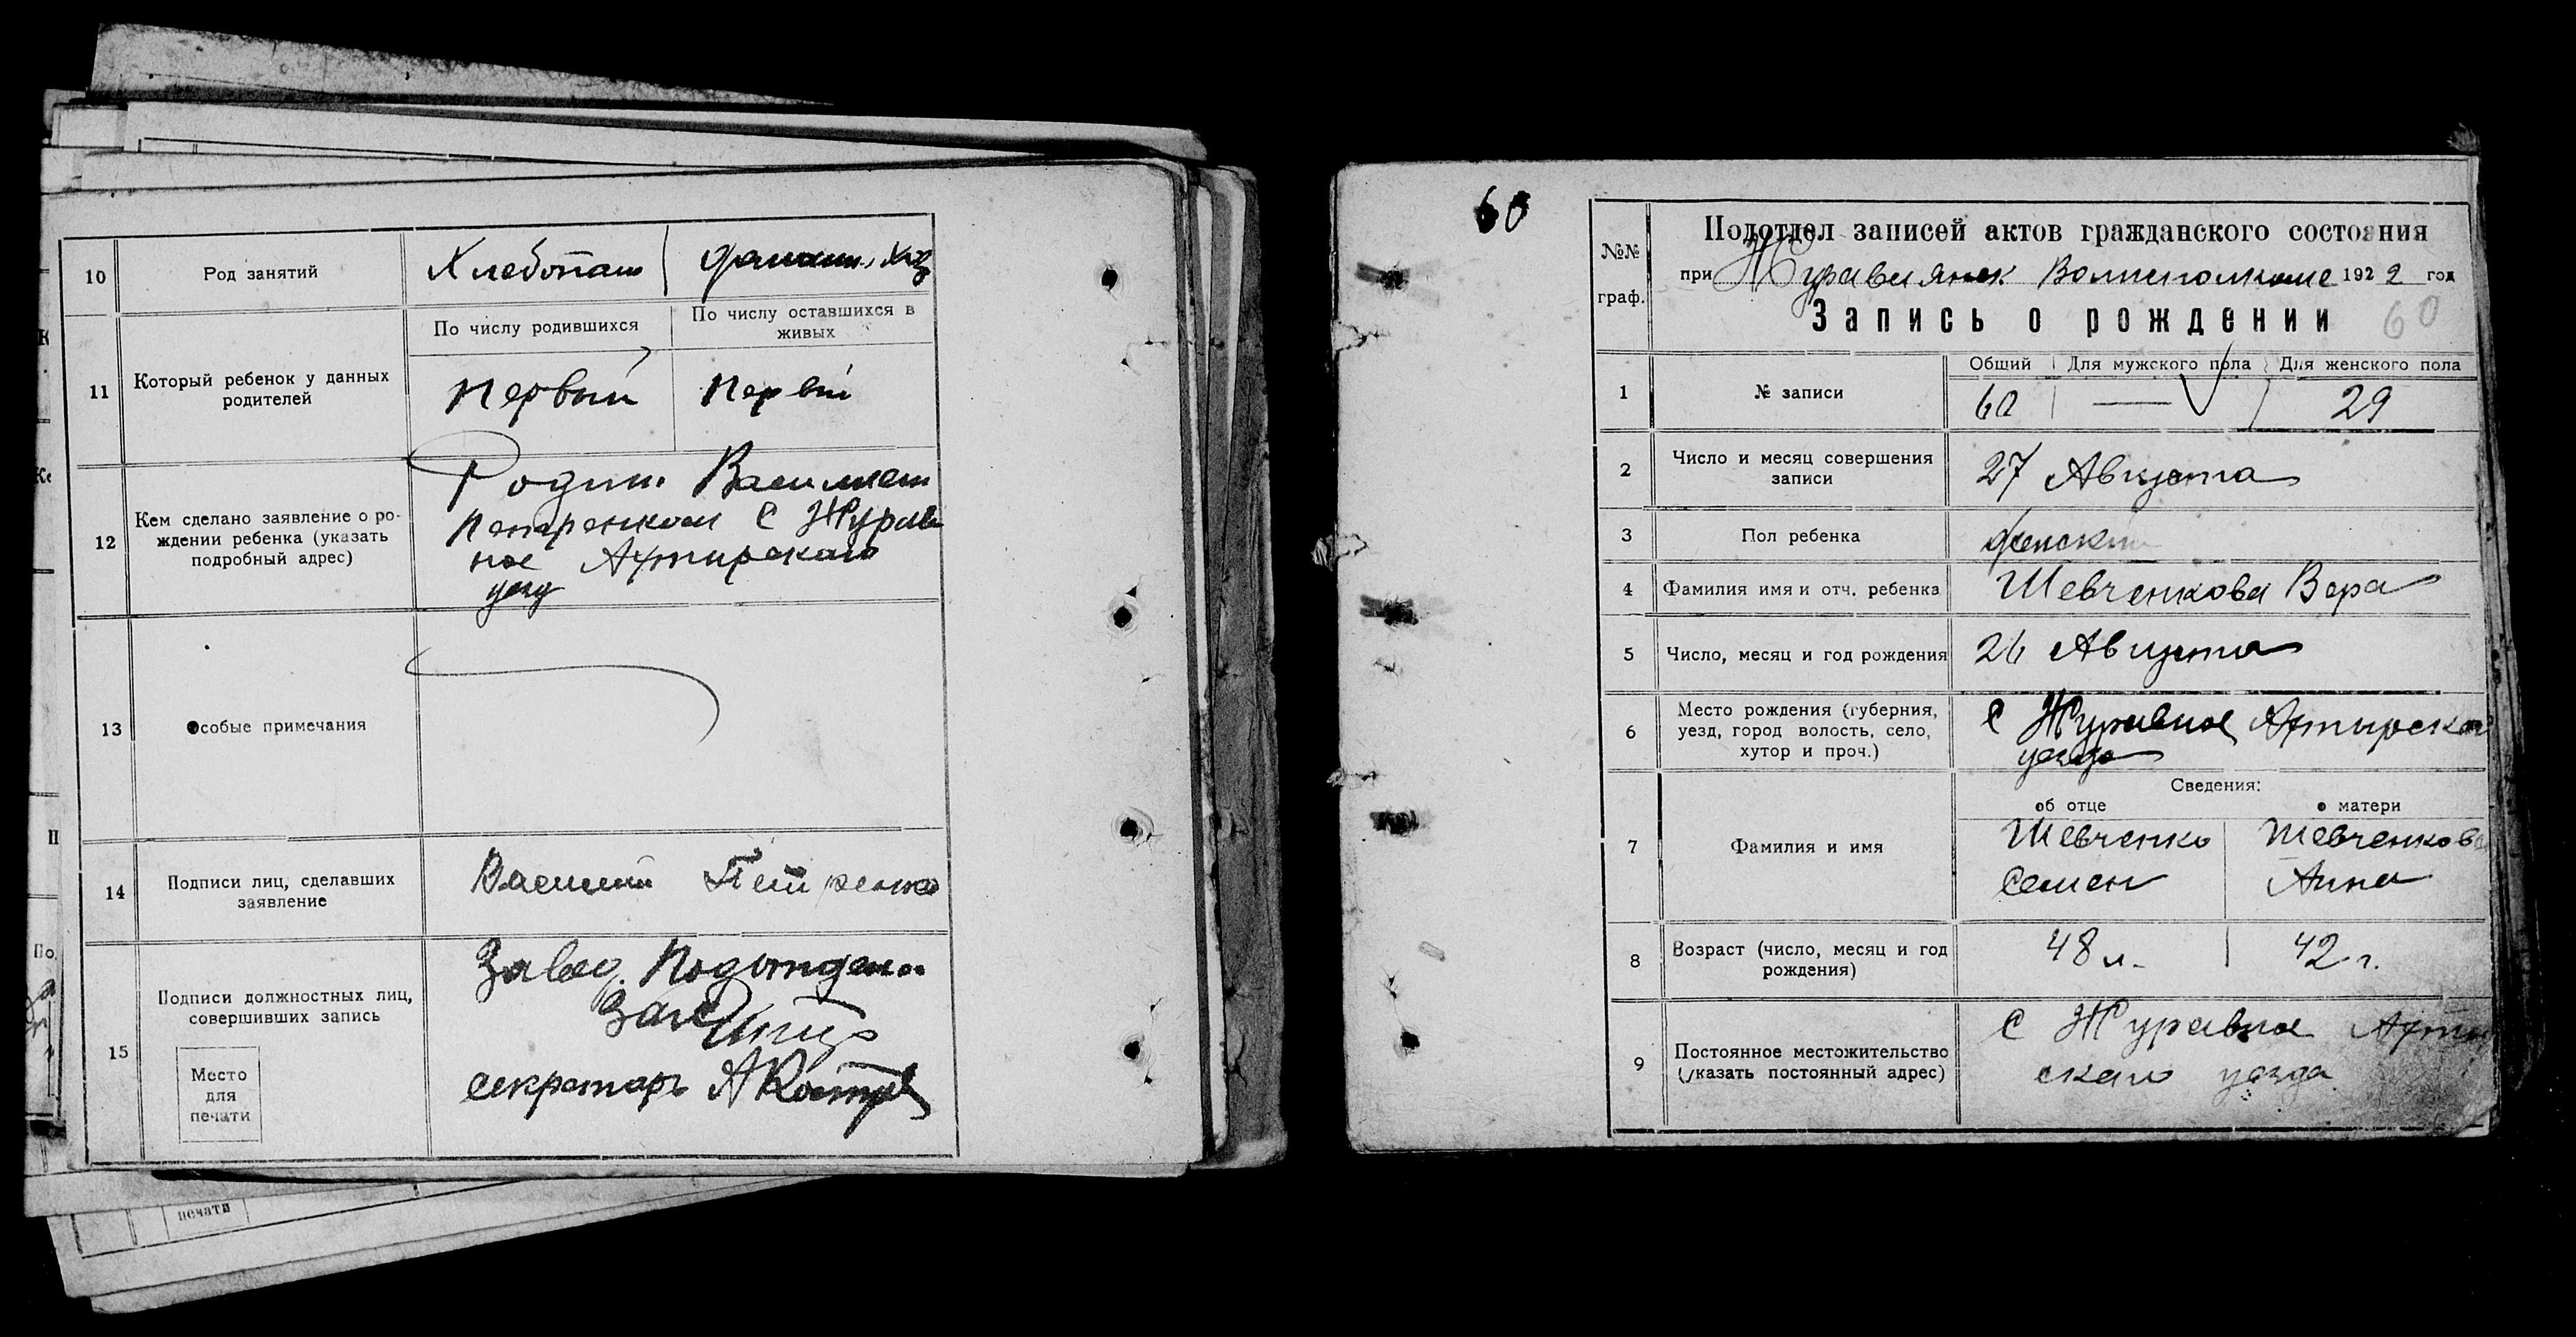 10
Род занятий
Хлебопаш
домашн. хоз
11
Который ребенок у данных
родителей
По числу родившихся
По числу оставшихся в
живых
Первый
Первы
12
Кем сделано заявление о ро-
ждении ребенка (указать
подробный адрес)
Родит. Василием
Петренком с Журав
ное Ахтирского
уезд
13
Особые примечания
14
Подписи лиц, сделавших
заявление
Василий Петренко
15
Подписи должностных лиц,
совершивших запись
Место
для
печати
Завед. Подотдела
Загс
секретарь
печати
60
№№
граф.
Подотдел записей актов гражданского состояния
при Журавлянск Волисполкоме 1922 год
Запись о рождении
60
1
№ записи
Общий
Для мужского пола
Для женского пола
60
—
29
2
Число и месяц совершения
записи
27 Августа
3
Пол ребенка
женский
4
Фамилия имя и отч. ребенка
Шевченкова Вера
5
Число, месяц и год рождения
26 Августа
6
Место рождения (губерния,
уезд, город волость, село,
хутор и проч.)
с Журавное Ахтырског
уезда
Сведения:
об отце
о матери
7
Фамилия и имя
Шевченко
Семен
Шевченкова
Анна
8
Возраст (число, месяц и год
рождения)
48 л.
42 г.
9
Постоянное местожительство
(указать постоянный адрес)
с Журавное Ахты
ского уезда